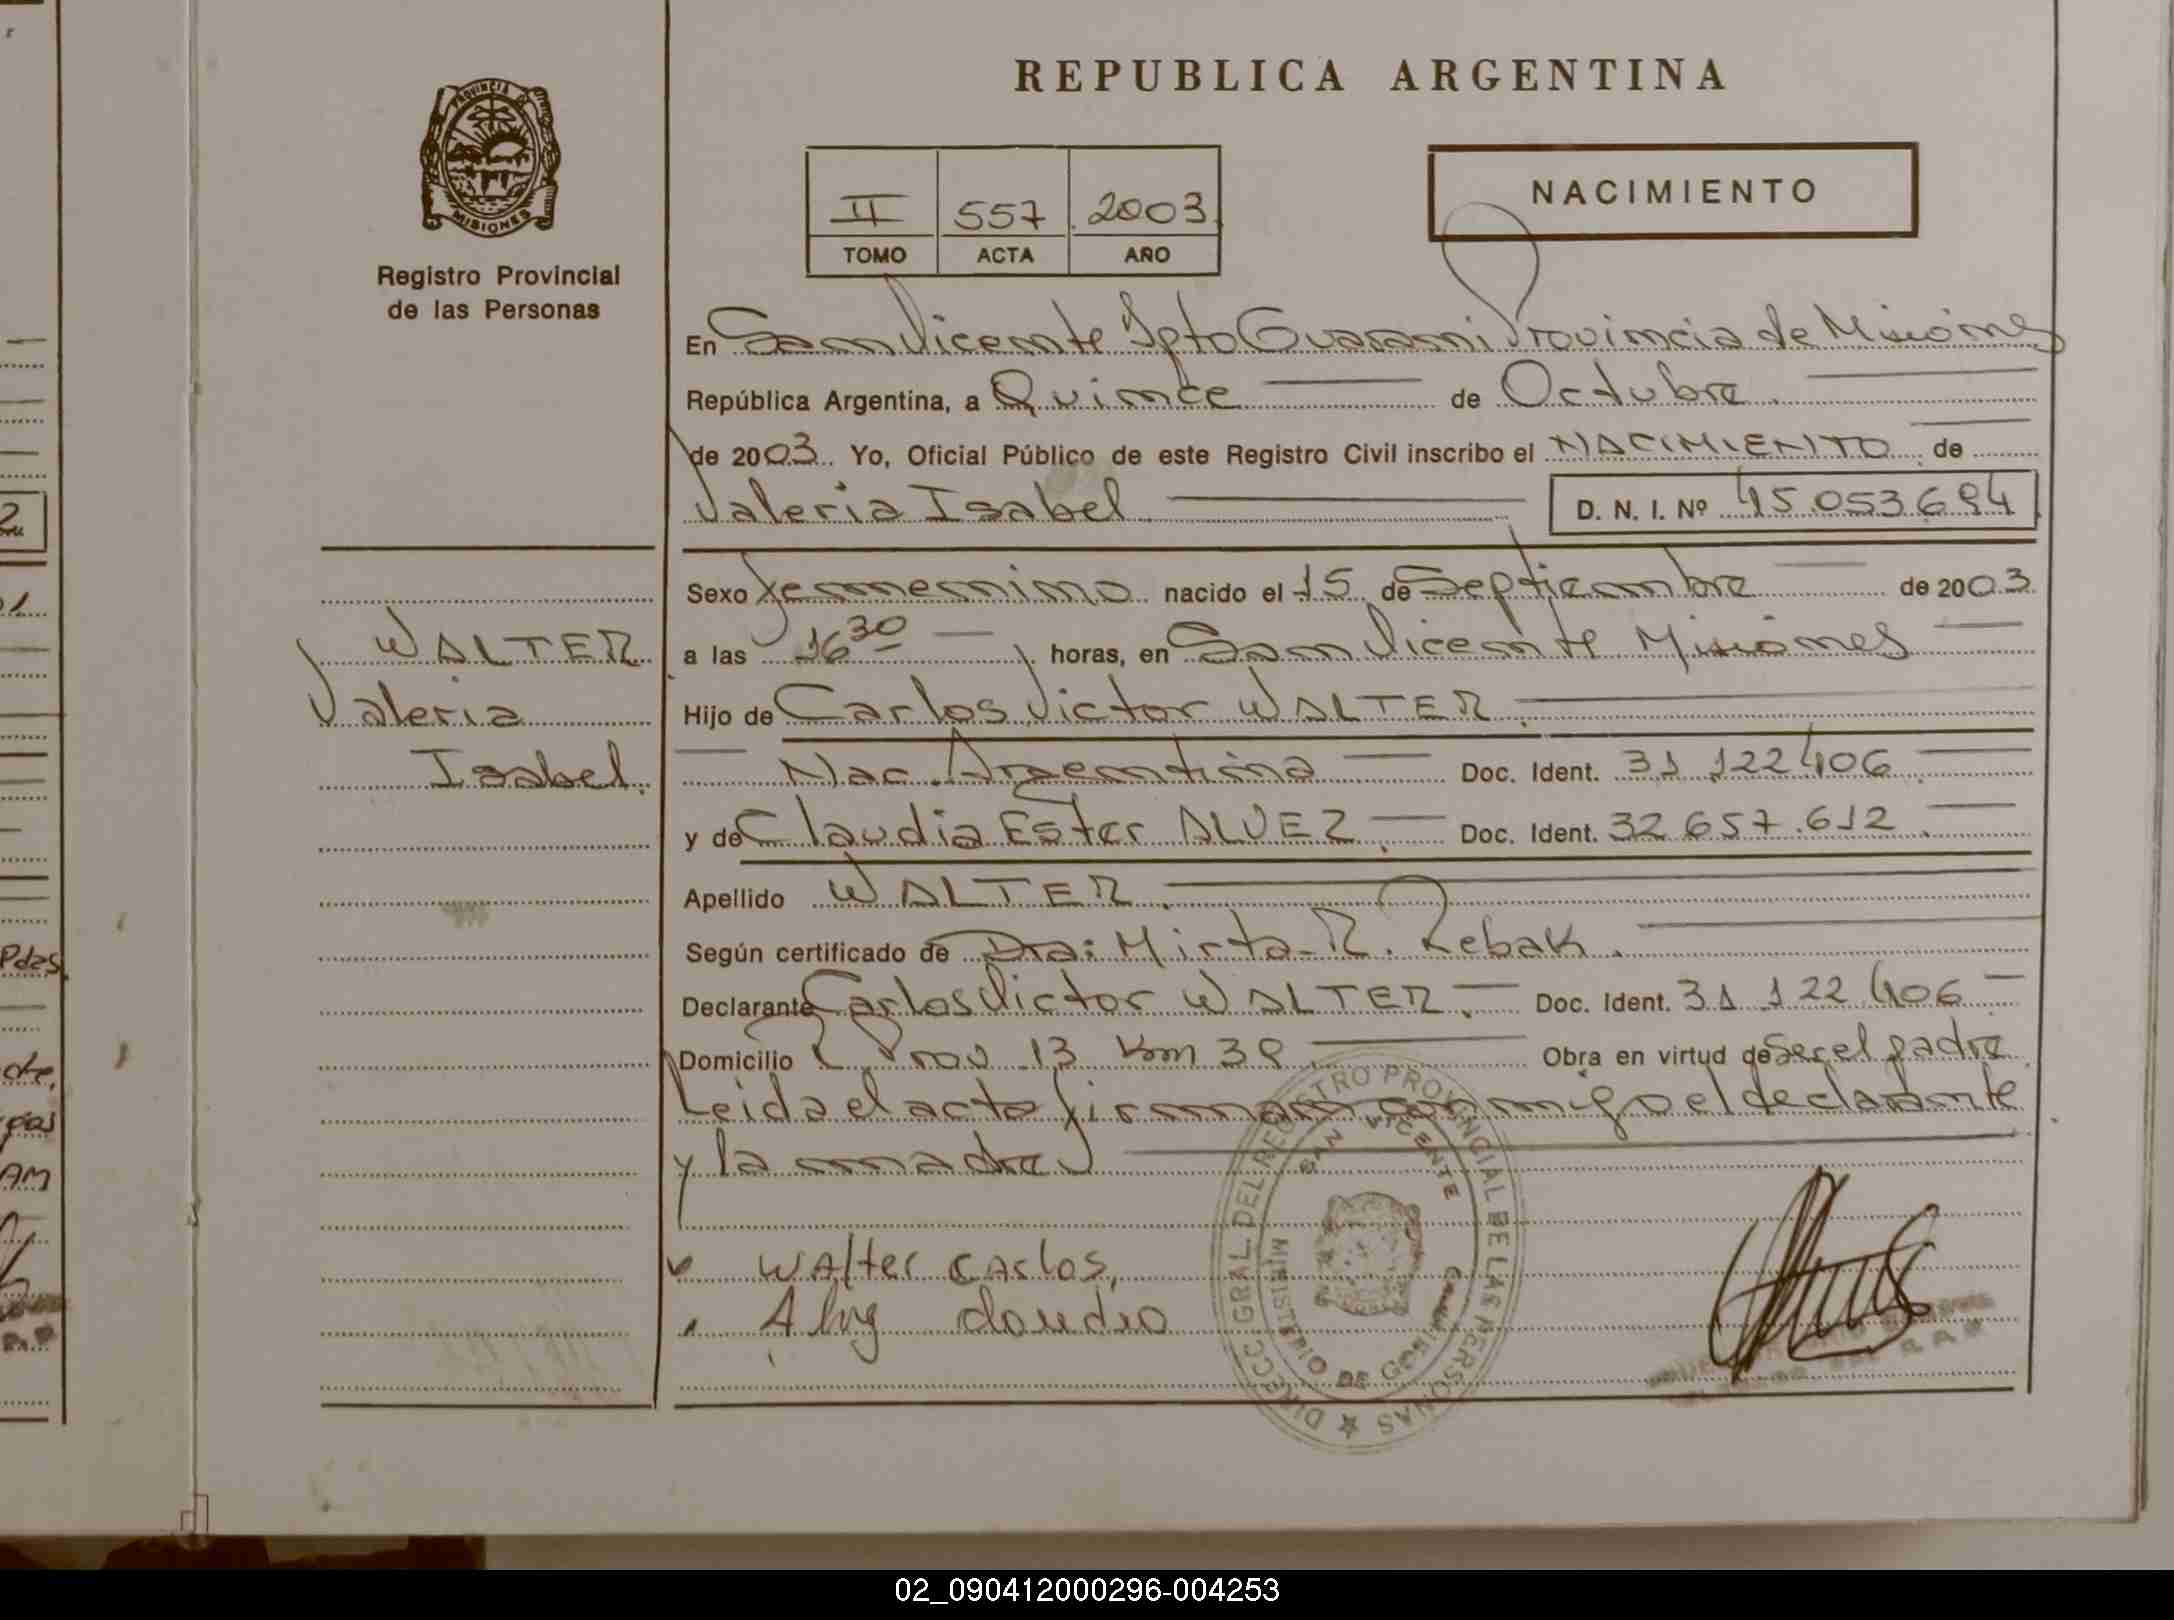 REPUBLICA ARGENTINA
PROVINCIA DE
MISIONES
Registro Provincial
de las Personas
II 557 2003
TOMO ACTA AÑO
NACIMIENTO
En San Vicente Dpto Guarani Provincia de Misiones
República Argentina, a Quince de Octubre
de 2003. Yo, Oficial Público de este Registro Civil inscribo el NACIMIENTO de
Valeria Isabel D. N. I. Nº 45.053.694
Sexo femenino nacido el 15 de Septiembre de 2003
a las 16 30 horas, en San Vicente Misiones
WALTER
Valeria
Isabel.
Hijo de Carlos Victor WALTER.
Nac. Argentina Doc. Ident. 31 122 406
y de Claudia Ester ALVEZ. Doc. Ident. 32 657.612
Apellido WALTER.
Según certificado de Dra: Mirta R. Rebak.
Declarante Carlos Victor WALTER. Doc. Ident. 31 122 406
Domicilio R. Prov 13 Km 38 Obra en virtud de Ser el padre
Leida el acta firman conmigo el declarante
y la madre
Walter Carlos,
DIRECC. GRAL. DEL REGISTRO PROVINCIAL DE LAS PERSONAS
SAN VICENTE
MINISTERIO DE GOBIERNO
02_090412000296-004253